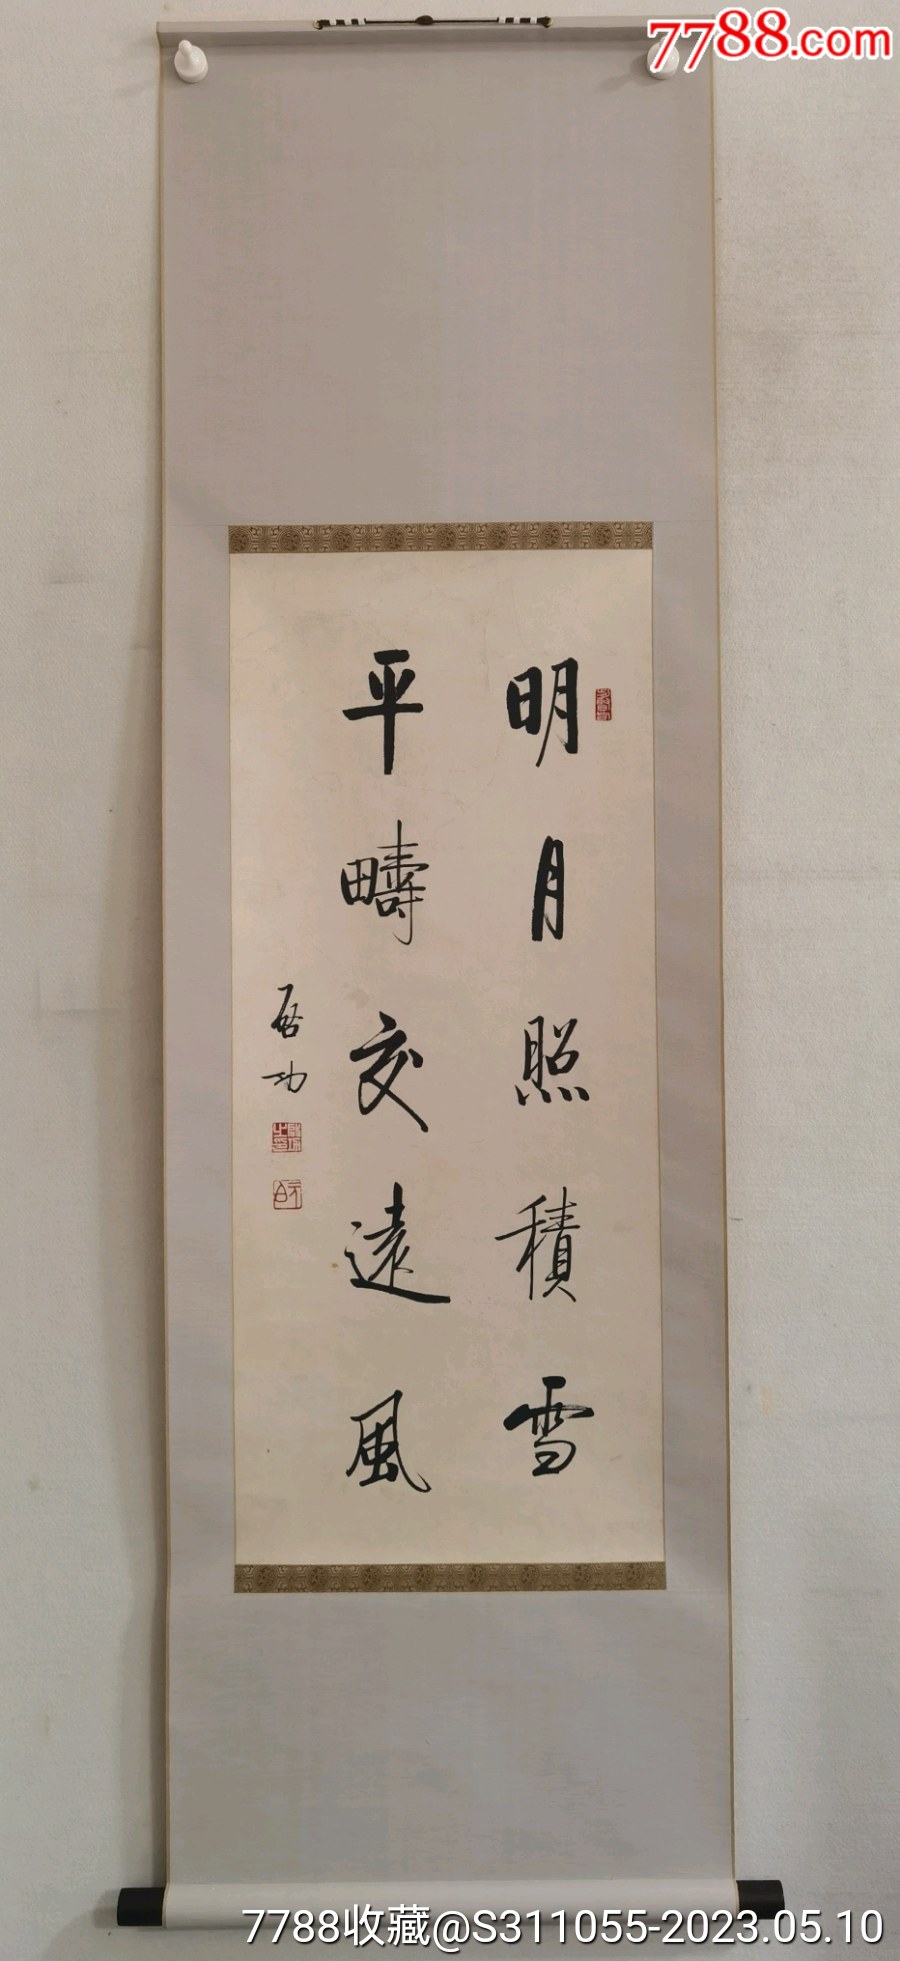 7788.com
明月照積雪
平疇交遠風
啟功
7788收藏@S311055-2023.05.10